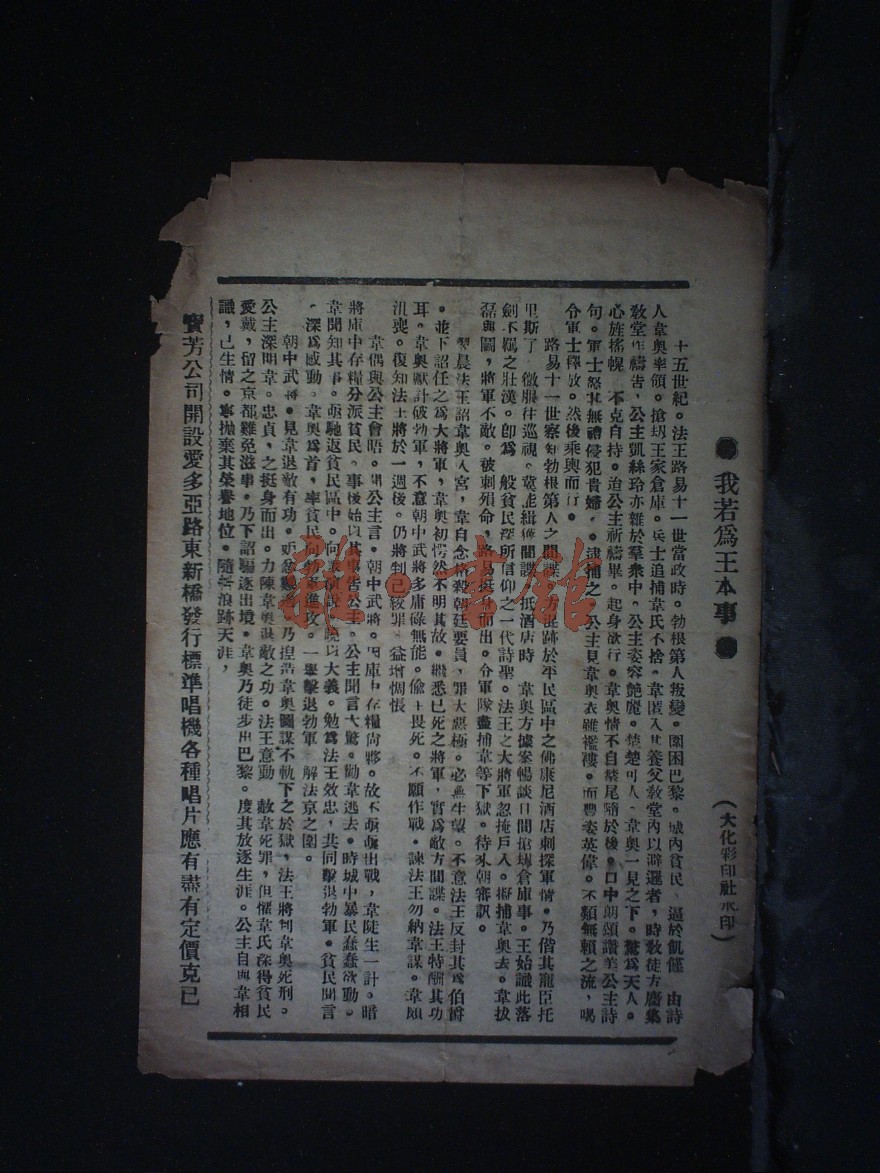 我若爲王本事
（大化彩印社承印）
十五世紀。法王路易十一世當政時。勃根第人叛變。圍困巴黎。城內貧民　逼於飢饉　由詩
人韋奧率領。搶刼王家倉庫。兵士追捕韋氏不捨。韋匿入其養父敎堂內以避邏者，時敎徒方麕集
敎堂作禱告，公主凱絲玲亦雜於羣衆中。公主姿容艷麗。楚楚可人。韋奧一見之下。驚爲天人。
心旌搖幌　不克自持。迨公主祈禱畢。起身欲行。韋奧情不自禁尾隨於後。口中朗頌讚美公主詩
句。軍士怒其無禮侵犯貴婦。逮捕之。公主見韋奧衣雖襤褸。而豐姿英偉。不類無賴之流，喝
令軍士釋放。然後乘輿而行。
路易十一世察知勃根第人之間諜　方混跡於平民區中之佛康尼酒店刺探軍情。乃偕其寵臣托
里斯丁　微服往巡視。冀能緝獲間諜　抵酒店時　韋奧方據案暢談日間搶刼倉庫事。王始識此落
劍不羈之壯漢。卽爲一般貧民深所信仰之一代詩聖。法王之大將軍忽掩戶入。擬捕韋奧去。韋拔
劍與鬭，將軍不敵。被刺殞命　路易挺身而出。令軍隊盡捕韋等下獄。待來朝審訊。
翌晨法王詔韋奧入宮，韋自念格殺朝廷要員，罪大惡極。必無生望。不意法王反封其爲伯爵
。並下詔任之爲大將軍，韋奧初愕然不明其故。繼悉已死之將軍，實爲敵方間諜。法王特酬其功
耳。韋奧獻計破勃軍，不意朝中武將多庸碌無能。偷生畏死。不願作戰。諫法王勿納韋謀。韋頗
沮喪。復知法王將於一週後。仍將判己絞罪　益增惆悵
韋偶與公主會晤。聞公主言。朝中武將。因庫中存糧尙夥。故不亟亟出戰，韋陡生一計。暗
將庫中存糧分派貧民。事後始以其事告公主。公主聞言大驚。勸韋逃去。時城中暴民蠢蠢欲動。
韋聞知其事。亟馳返貧民區中。向衆演說　曉以大義。勉爲法王效忠，共同擊退勃軍。貧民聞言
。深爲感動。韋奧爲首，率貧民向勃軍進攻。一舉擊退勃軍　解法京之圍。
朝中武將。見韋退敵有功。乃揑造韋奧圖謀不軌下之於獄，法王將判韋奧死刑。
公主深明韋。忠貞，之挺身而出。力陳韋奧退敵之功。法王意動　赦韋死罪，但懼韋氏深得貧民
愛戴，留之京都難免滋事。乃下詔驅逐出境。韋奧乃徒步出巴黎。度其放逐生涯。公主自與韋相
識，已生情。寧拋棄其榮譽地位。隨韋浪跡天涯，
寶芳公司開設愛多亞路東新橋發行標準唱機各種唱片應有盡有定價克已